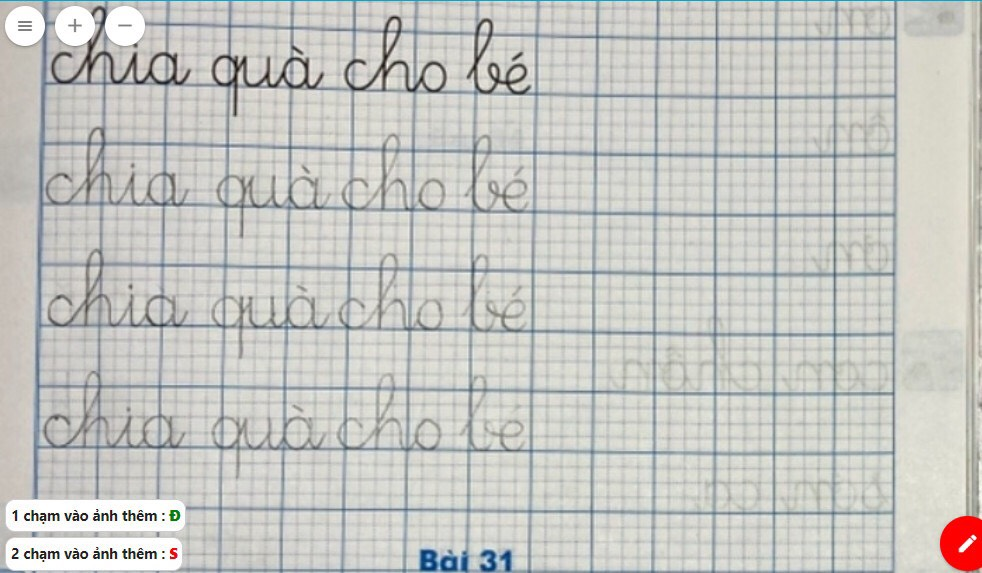 chia quà cho bé
chia quà cho bé
chia quà cho bé
chia quà cho bé
1 chạm vào ảnh thêm : Đ
2 chạm vào ảnh thêm : S
Bài 31